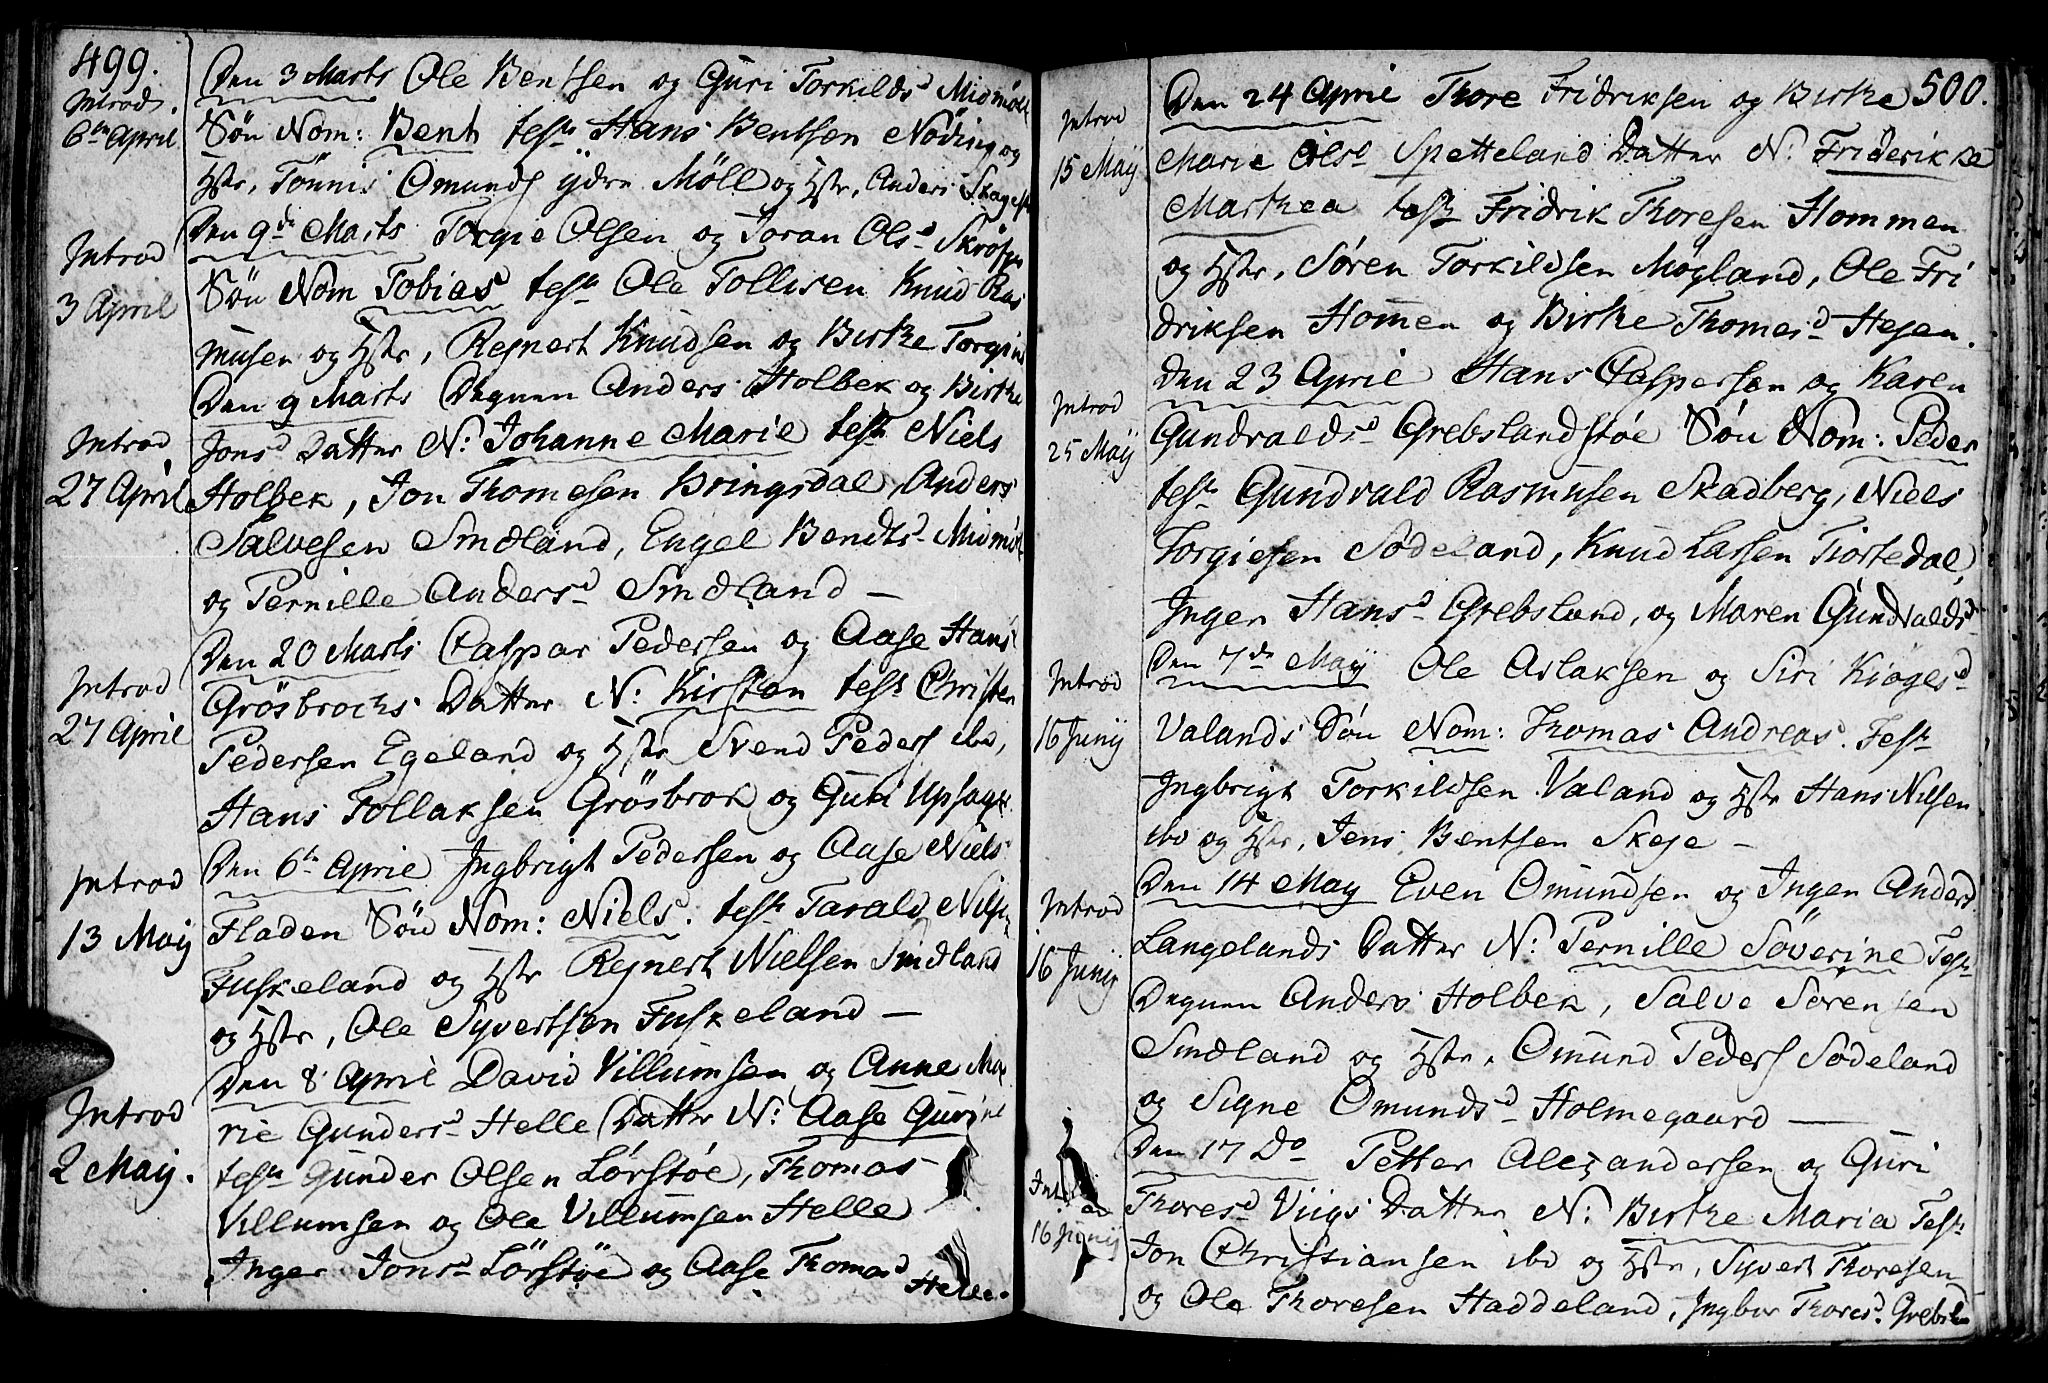 499.
Introd.
6te April
Den 3 Marts Ole Bentsen og Guri Torkilds d Midmöll
Sön Nom: Bent test Hans Bentsen Nöding og
Hstr, Tönnis Omunds ydre Möll og Hstr, Anders Skagest
Introd
3 April
Den 9de Marts Torgie Olsen og Joran Ols d
Sön Nom Tobias test Ole Tollisen Knud Ras
musen og Hstr, Rejnert Knudsen og Birthe Torgius
Introd
27 April
Den 9 Marts Degnen Anders Holbek og Birthe
Jons d Datter N: Johanne Marie test Niels
Holbek, Jon Thomesen Bringsdal, Anders
Salvesen Smedland, Engel Bendts d Midmöll
og Pernille Anders d Smedland —
Introd
27 April
Den 20 Marts Caspar Pedersen og Aase Hans
Grösbrocks Datter N: Kirsten test Christen
Pedersen Egeland og Hstr Svend Peders ibd,
Hans Tollaksen Grösbrok og Guri Upsagr
Introd
13 Maij
Den 6te April Ingbrigt Pedersen og Aase Niels
Fladen Sön Nom: Niels. test Tarald Nils
Fuskeland og Hstr Rejnert Nielsen Smedland
og Hstr, Ole Syvertsen Fuskeland —
Introd
2 Maij.
Den 8 April David Villumsen og Anne Ma
rie Gunders d Helle Datter N: Aase Gurine
test Gunder Olsen Lörstöe, Thomas
Villumsen og Ole Villumsen Helle
Inger Jons d Lörstöe og Aase Thomas d Helle.
500.
Introd
15 Maij
Den 24 April Thore Fridriksen og Birthe
Marie Ols d Spetteland Datter N: Friderikke
Marthea test Fridrik Thoresen Hommen
og Hstr, Sören Torkildsen Mögland, Ole Fri
driksen Homen og Birthe Thomes d Hesen.
Introd
25 Maij
Den 23 April Hans Caspersen og Karen
Gundvalds d Grebslandstöe Sön Nom: Peder
test Gundvald Rasmusen Skadberg, Niels
Torgiesen Södeland, Knud Lassen Tiortedal,
Inger Hans d Grebsland, og Maren Gundvalds d
Introd
16 Junij
Den 7de Maij Ole Aslaksen og Siri Kiöges d
Valands Sön Nom: Thomas Andreas. Test
Ingbrigt Torkildsen Valand og Hstr Hans Nilsen
ibd og Hstr, Jens Bentsen Skeje —
Introd
16 Junij
Den 14 May Even Omundsen og Inger Anders
Langelands Datter N: Pernille Söverine Test
Degnen Anders Holbek, Salve Sörensen
Smedland og Hstr, Omund Peders Södeland
og Signe Omunds d Holmegaard —
16 Junij
Den 17 Do Petter Alexandersen og Guri
Thores d Viigs Datter N: Birthe Maria Test
Jon Christiansen ibd og Hstr, Syvert Thoresen
og Ole Thoresen Haddeland, Ingbor Thores d.